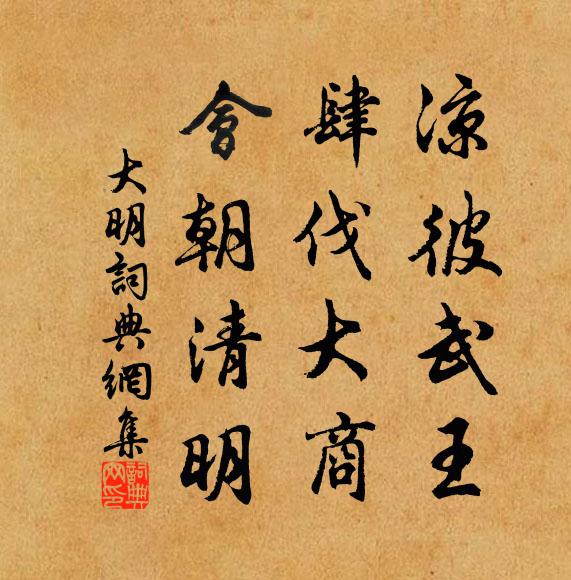 涼彼武王
肆伐大商
會朝清明
大明詞典網集
詞典
网印